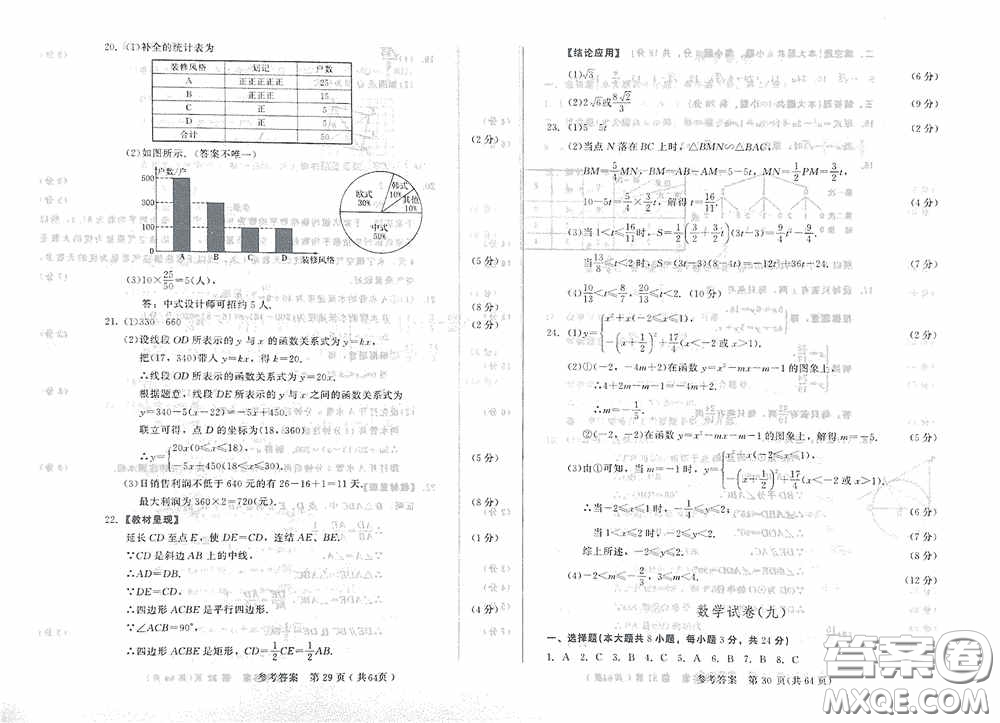 20. (1)补全的统计表为
装修风格 划记 户数
A 正正正正正 25
B 正正正 15
C 正 5
D 正 5
合计 / 50
(2分)
(2)如图所示. (答案不唯一)
户数/户
500
300
100
0 A B C D 装修风格
欧式 30%
韩式 10%
其他 10%
中式 50%
(5分)
(3)10×25/50=5(人).
答：中式设计师可招约5人. (8分)
21. (1)330 660 (2分)
(2)设线段OD所表示的y与x的函数关系式为y=kx,
把(17，340)带人y=kx，得k=20.
∴线段OD所表示的函数关系式为y=20x.
根据题意，线段DE所表示的y与x之间的函数关系式为
y=340-5(x-22)=-5x+450.
联立可得，点D的坐标为(18，360)
∴y={20x(0≤x≤18),
-5x+450(18<x≤30). (5分)
(3)日销售利润不低于640元的有26-16+1=11天.
最大利润为360×2=720(元). (8分)
22. 【教材呈现】
延长CD至点E，使DE=CD，连结AE、BE. (1分)
∵CD是斜边AB上的中线，
∴AD=DB.
∵DE=CD,
∴四边形ACBE是平行四边形. (4分)
∵∠ACB=90°,
∴四边形ACBE是矩形，CD=1/2CE=1/2AB.
参考答案 第29页(共64页)
【结论应用】
(1)√3 (6分)
(2)2√6或8√2/3 (9分)
23. (1)5-5t (2分)
(2)当点N落在BC上时，△BMN∽△BAC,
BM=5/4MN，BM=AB-AM=5-5t，MN=1/2PM=3/2t,
10-5t=5/4×3/2t，解得t=16/11. (4分)
(3)当1<t≤16/11时，S=1/2(3/2+3/2t)(3t-3)=9/4t²-9/4.
当13/8≤t<2时，S=(3t-3)(8-4t)=-12t²+36t-24. (7分)
(4)10/13<t≤8/7，1<t<2. (10分)
24. (1)y={x²+x(-2≤x≤1),
-(x+1/2)²+17/4(x<-2或x>1). (2分)
(2)①(-2，-4m+2)在函数y=x²-mx-m-1的图象上，
∴4+2m-m-1=-4m+2.
∴m=-1/5. (4分)
②(-2，-4m+2)在函数y=x²-mx-m-1的图象上，解得m=-5. (5分)
(3)由①可知，当m=-1时，y={x²+x(-2≤x≤1),
-(x+1/2)²+17/4(x<-2或x>1).
当-2≤x≤1时，-1/4≤y≤2. (6分)
当1<x≤2时，-2≤y<2. (7分)
综上所述，-2≤y≤2. (8分)
(4)-2<m≤-2/3，3≤m≤4. (12分)
数学试卷(九)
一、选择题(本大题共8小题，每小题3分，共24分)
1. A 2. C 3. B 4. B 5. D 6. A 7. C 8. C
参考答案 第30页(共64页)
答案圈